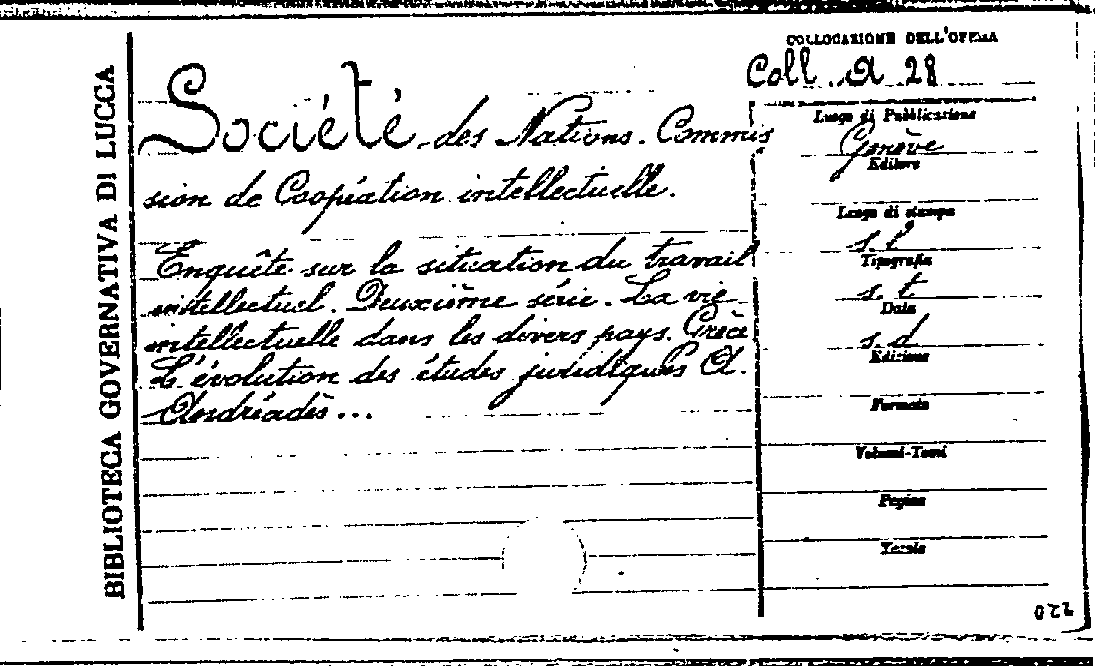 BIBLIOTECA GOVERNATIVA DI LUCCA
Société des Nations. Commis
sion de Coopération intellectuelle.
Enquête sur la situation du travail
intellectuel. Deuxième série. La vie
intellectuelle dans les divers pays. Grèce
L'évolution des études juridiques A.
Andréadès...
COLLOCAZIONE DELL'OPERA
Coll. A 28
Luogo di Pubblicazione
Genève
Editore
Luogo di stampa
s. l
Tipografia
s. t
Data
s. d
Edizione
Formato
Volumi-Tomi
Pagine